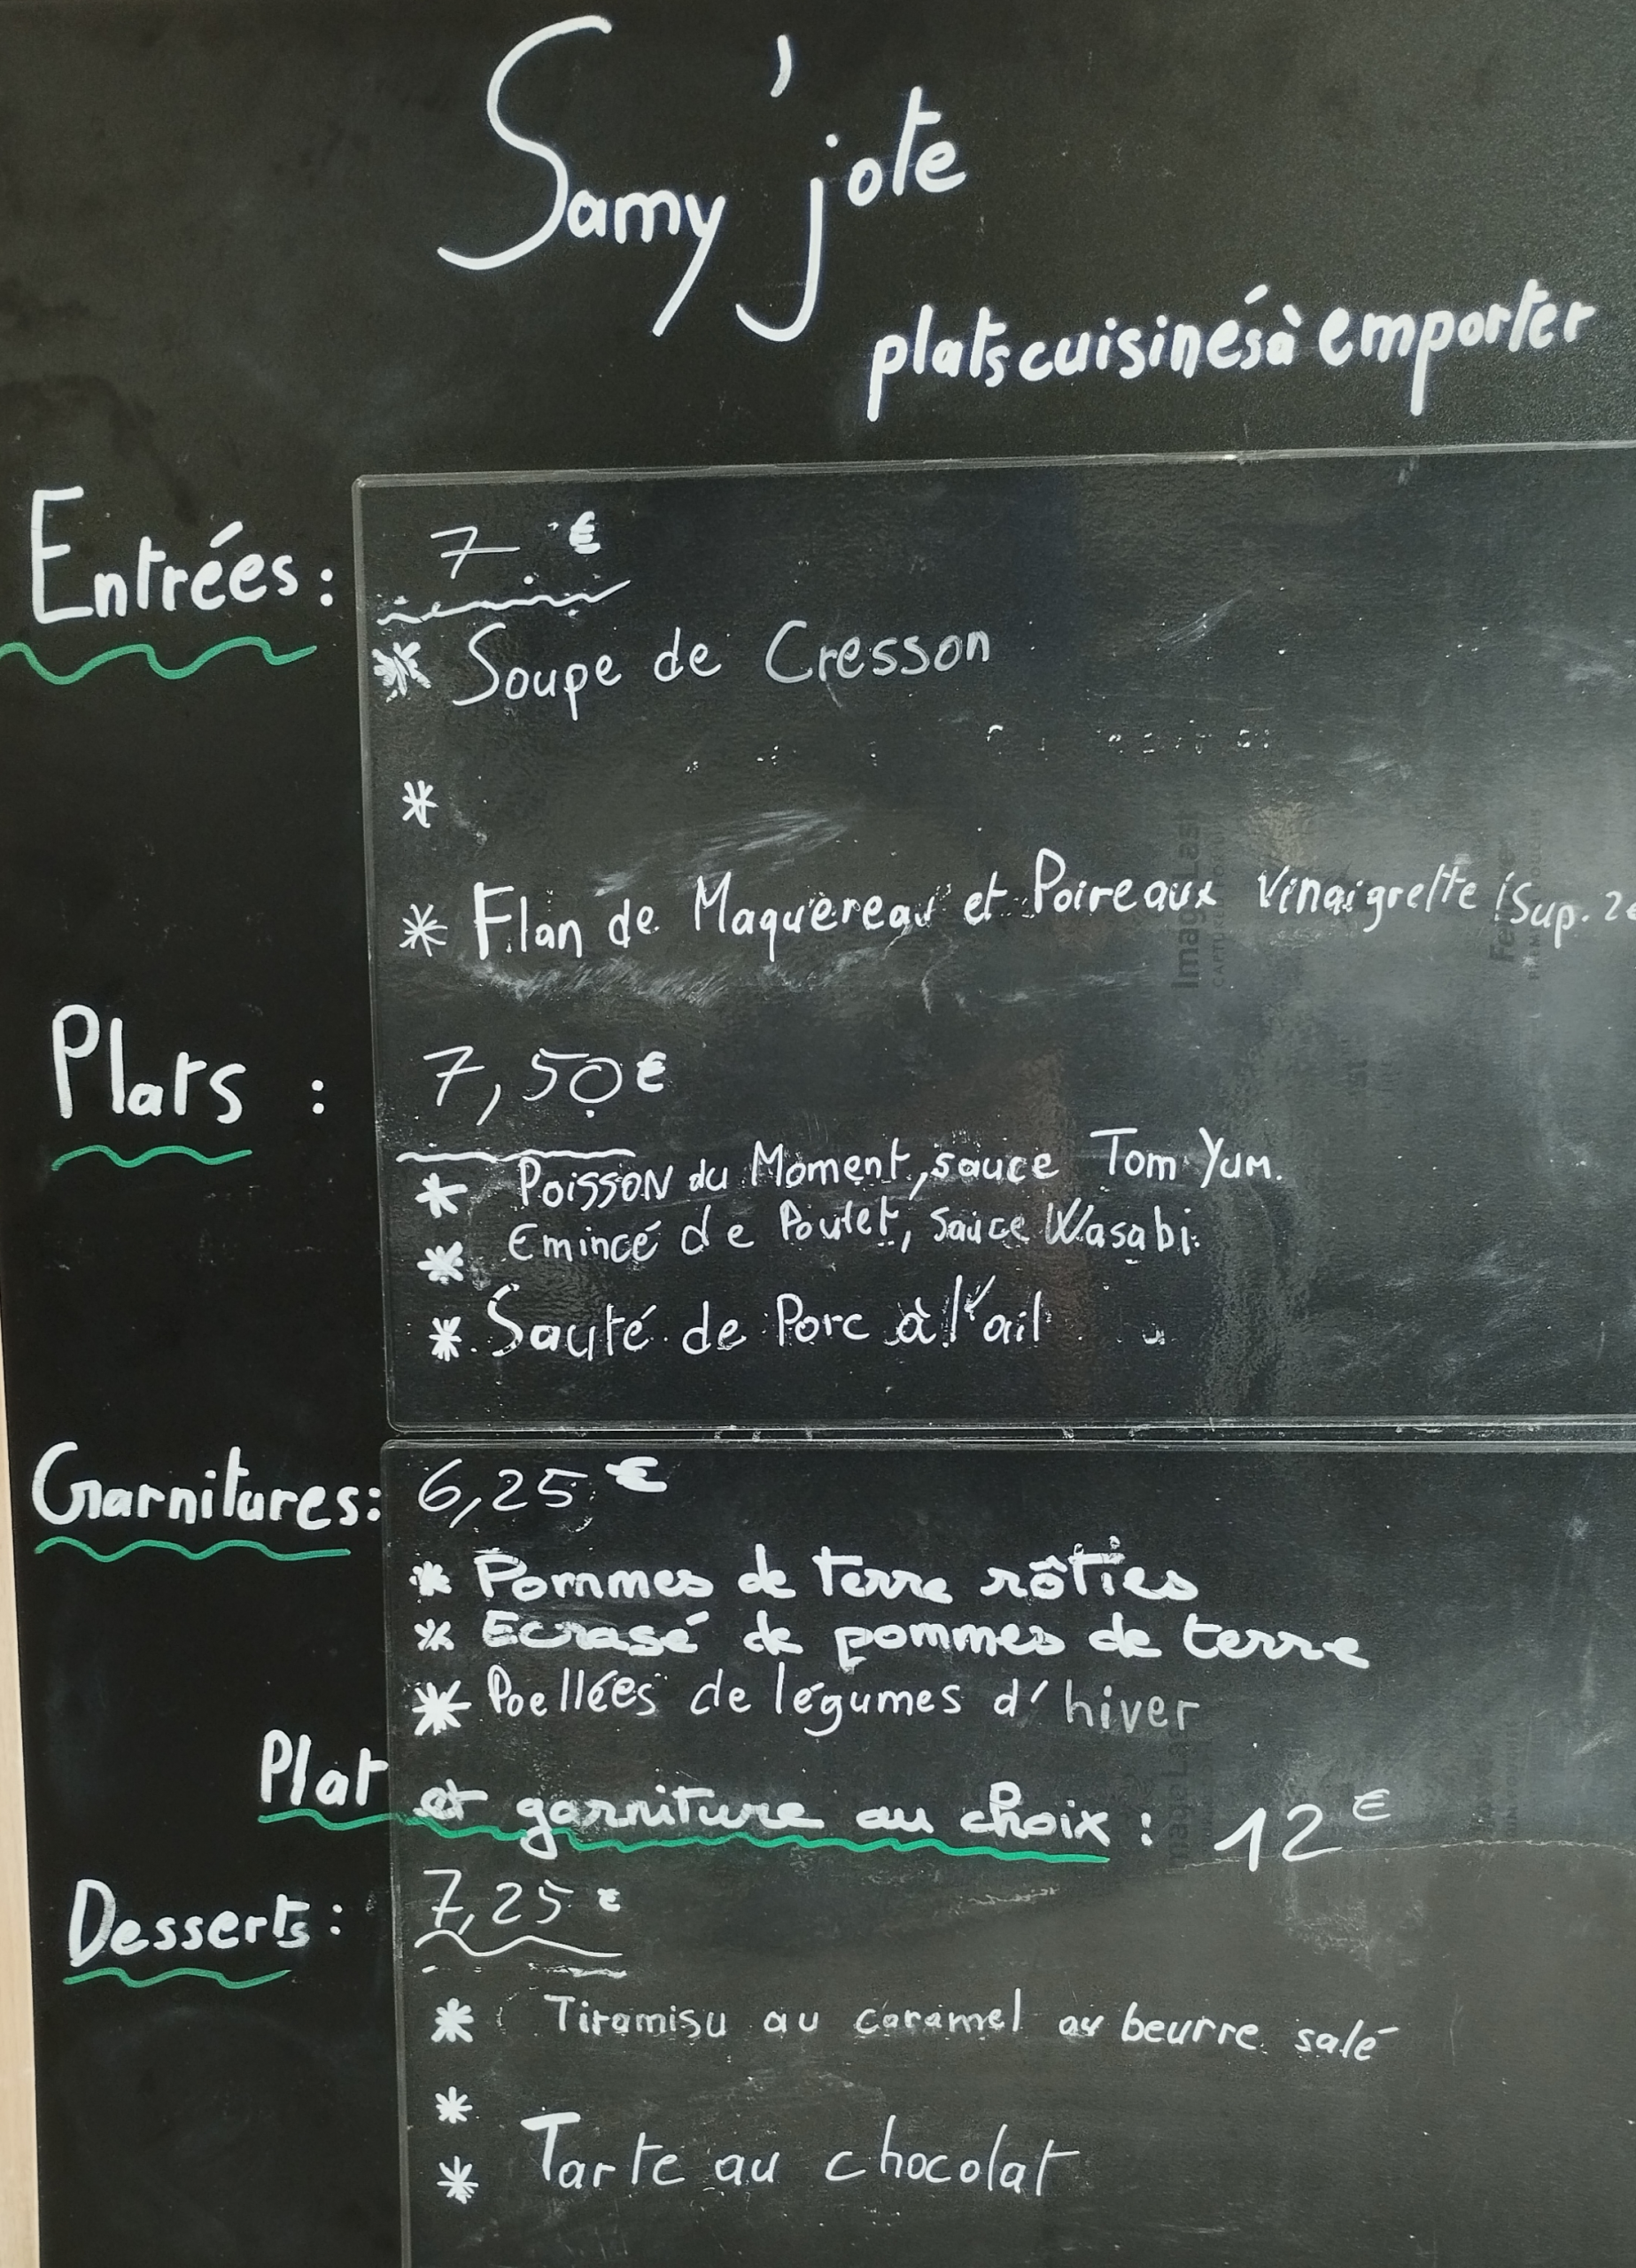 Samy'jote
plats cuisinés à emporter
Entrées : 7 €
* Soupe de Cresson
*
* Flan de Maquereau et Poireaux Vinaigrette (Sup. 2€
Plats : 7,50 €
* Poisson du Moment, sauce Tom Yum.
* Emincé de Poulet, sauce Wasabi.
* Sauté de Porc à l'ail
Garnitures: 6,25 €
* Pommes de terre rôties
* Ecrasé de pommes de terre
* Poellées de légumes d'hiver
Plat et garniture au choix : 12 €
Desserts : 7,25 €
* Tiramisu au caramel au beurre salé
*
* Tarte au chocolat